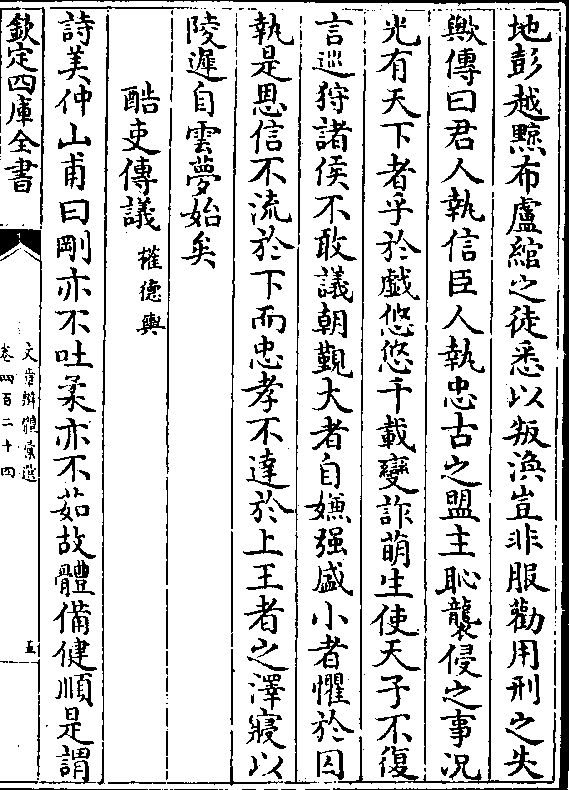 地彭越黥布盧綰之徒悉以叛渙豈非服勸用刑之失
歟傳曰君人執信臣人執忠古之盟主恥襲侵之事況
光有天下者乎於戲悠悠千載變詐萌生使天子不復
言巡狩諸侯不敢議朝覲大者自嫌强盛小者懼於囚
執是恩信不流於下而忠孝不達於上王者之澤寖以
陵遲自雲夢始矣
酷吏傳議 權德輿
詩美仲山甫曰剛亦不吐柔亦不茹故體備健順是謂
欽定四庫全書
文章辨體彙選
卷四百二十四
五